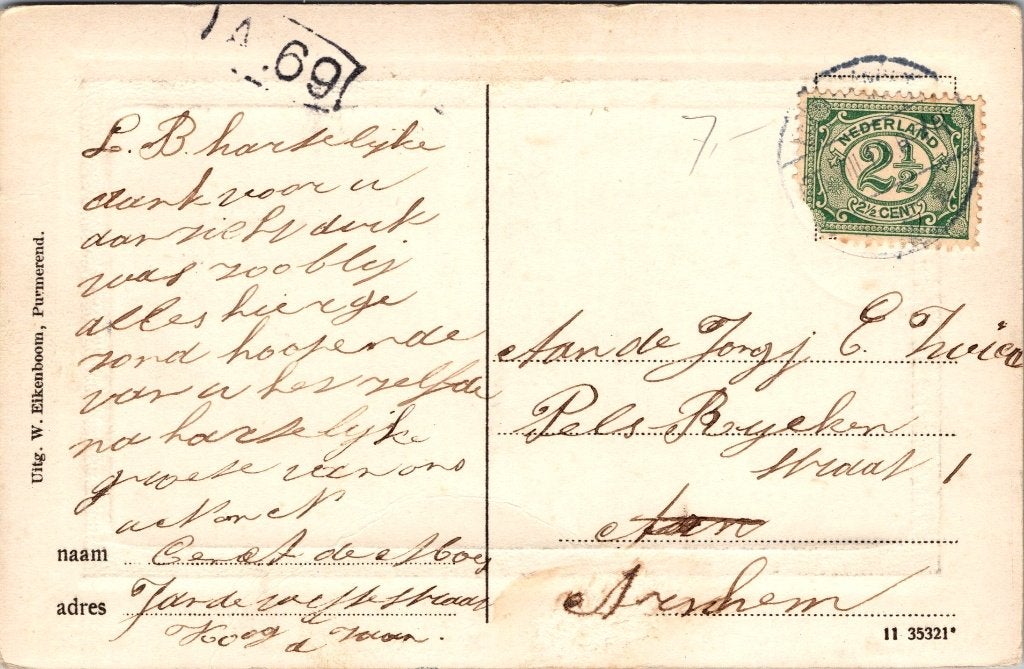 A 69
L. B. hartelijke
dank voor u
aanzicht
was zoo blij
alles hier ge
zond hoopende
van u het zelfde
na hartelijke
groete van ons
naam Cen de
adres straat
Koog a d Zaan.
Uitg. W. Eikenboom, Purmerend.
7,-
NEDERLAND
2½
2½ CENT
Aan de E.
Pels Rycken
straat 1
Aan
Arnhem
11 35321*